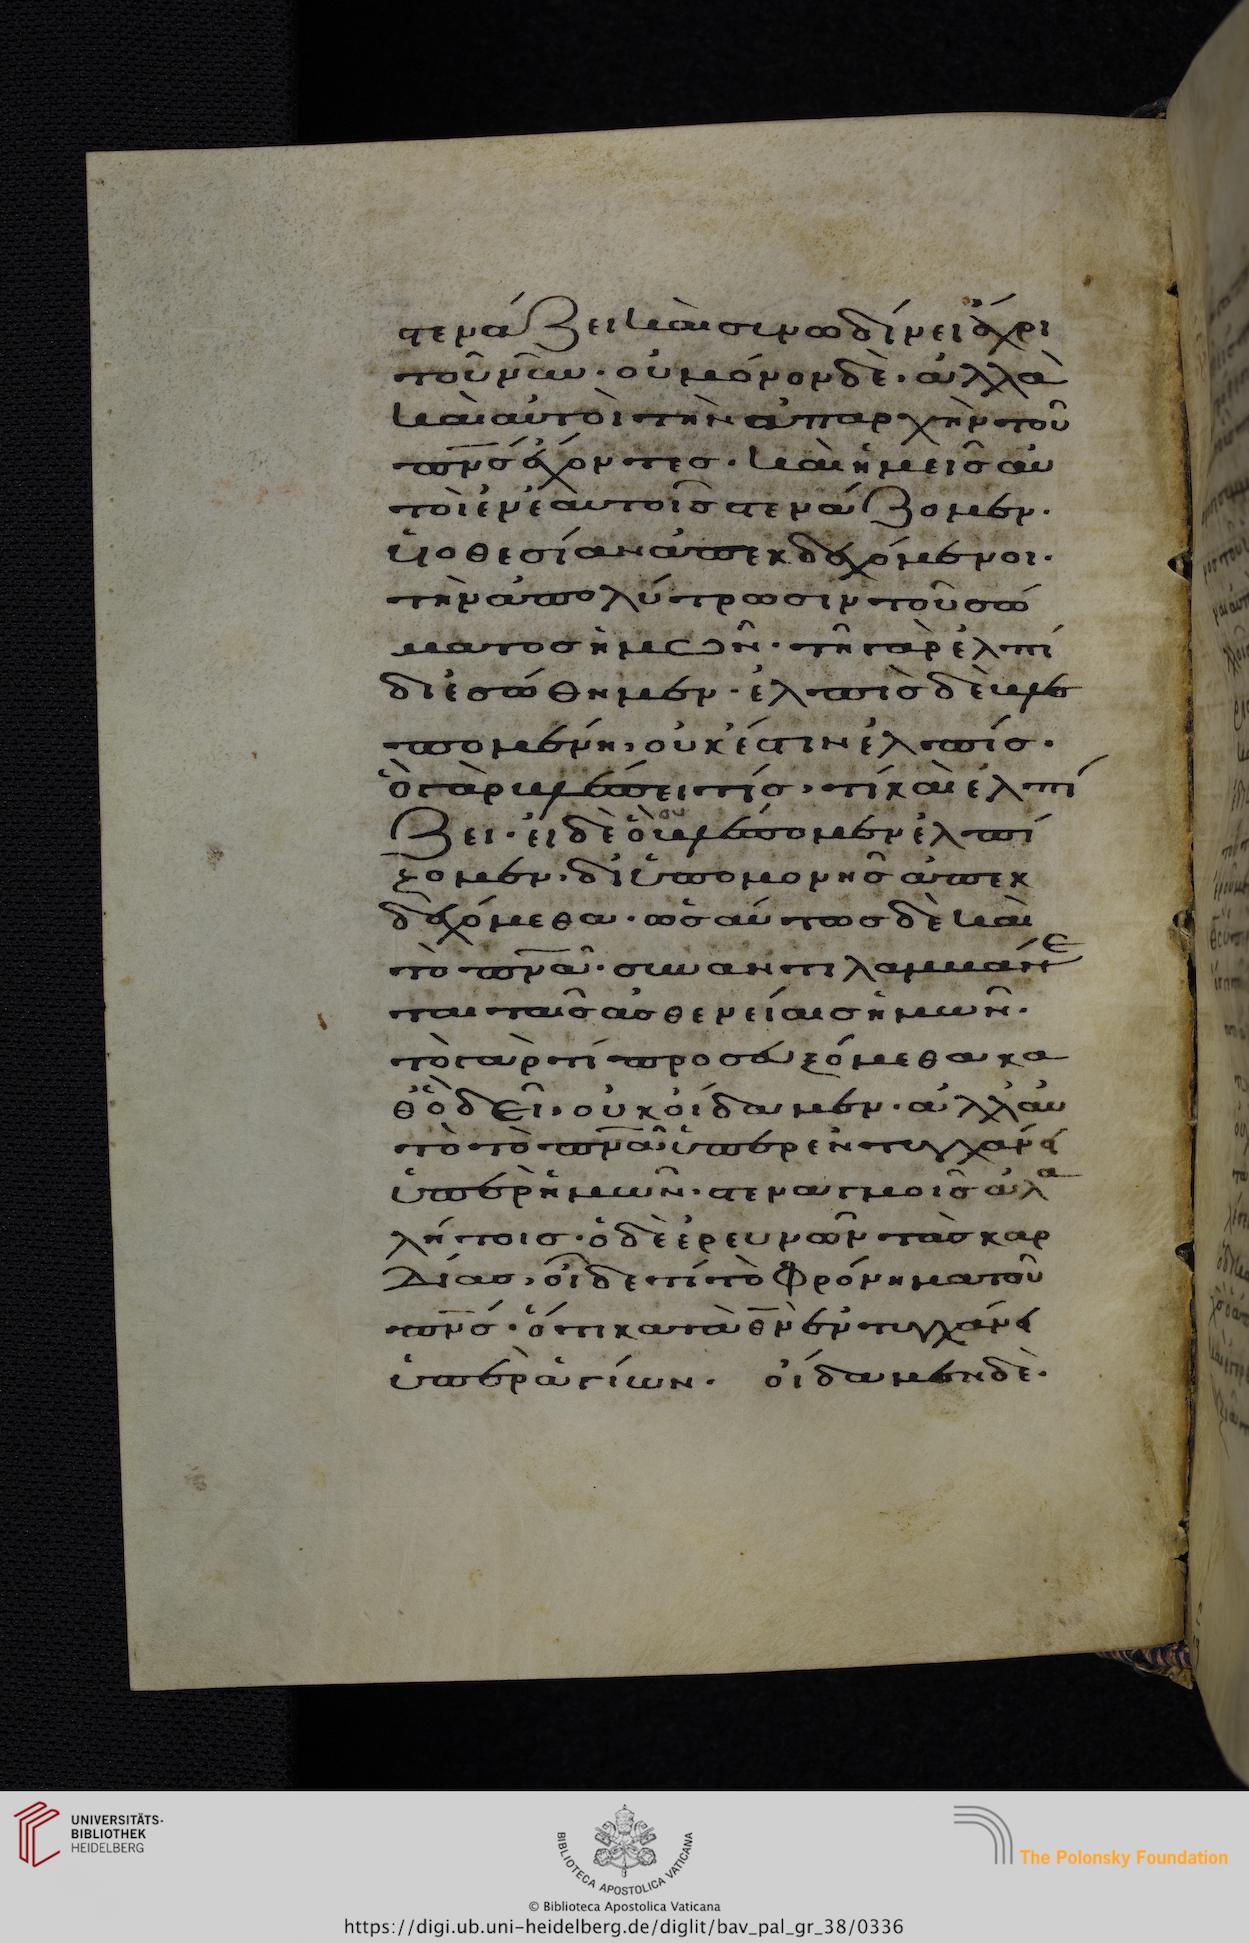 στενάζει καὶ συνωδίνει ἄχρι
τοῦ νῦν· οὐ μόνον δὲ· ἀλλὰ
καὶ αὐτοὶ τὴν ἀπαρχὴν τοῦ
πν̅ς ἔχοντες· καὶ ἡμεῖς αὐ
τοὶ ἐν ἑαυτοῖς στενάζομεν·
υἱοθεσίαν ἀπεκδεχόμενοι·
τὴν ἀπολύτρωσιν τοῦ σώ
ματος ἡμῶν· τῆ γὰρ ἐλπί
δι ἐσώθημεν· ἐλπὶς δὲ βλε
πομένη, οὐκ ἔστιν ἐλπίς·
ὃ γὰρ βλέπει τίς, τί καὶ ἐλπί
ζει· εἰ δὲ ὃ οὐ βλέπομεν ἐλπί
ζομεν, δι ὑπομονῆς ἀπεκ
δεχόμεθα· ὡσαύτως δὲ καὶ
τὸ πν̅α· συναντιλαμβάνε
ται ταῖς ἀσθενείαις ἡμῶν·
τὸ γὰρ τί προσευξόμεθα κα
θὃ δεῖ, οὐκ οἴδαμεν· ἀλλ' αὐ
τὸ τὸ πν̅α ὑπερεντυγχάνει
ὑπὲρ ἡμῶν· στεναγμοῖς ἀλα
λήτοις· ὁ δὲ ἐρευνῶν τὰς καρ
δίας, οἶδε τί τὸ φρόνημα τοῦ
πν̅ς· ὅτι κατὰ θ̅ν ἐντυγχάνει
ὑπὲρ ἁγίων· οἴδαμεν δὲ·
UNIVERSITÄTS-
BIBLIOTHEK
HEIDELBERG
BIBLIOTECA APOSTOLICA VATICANA
The Polonsky Foundation
© Biblioteca Apostolica Vaticana
https://digi.ub.uni-heidelberg.de/diglit/bav_pal_gr_38/0336